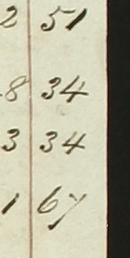 2 51
8 34
3 34
1 67